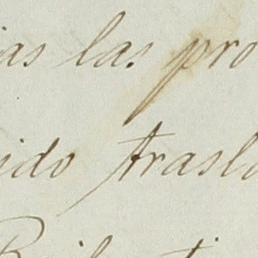 ias las pro
ido trasla